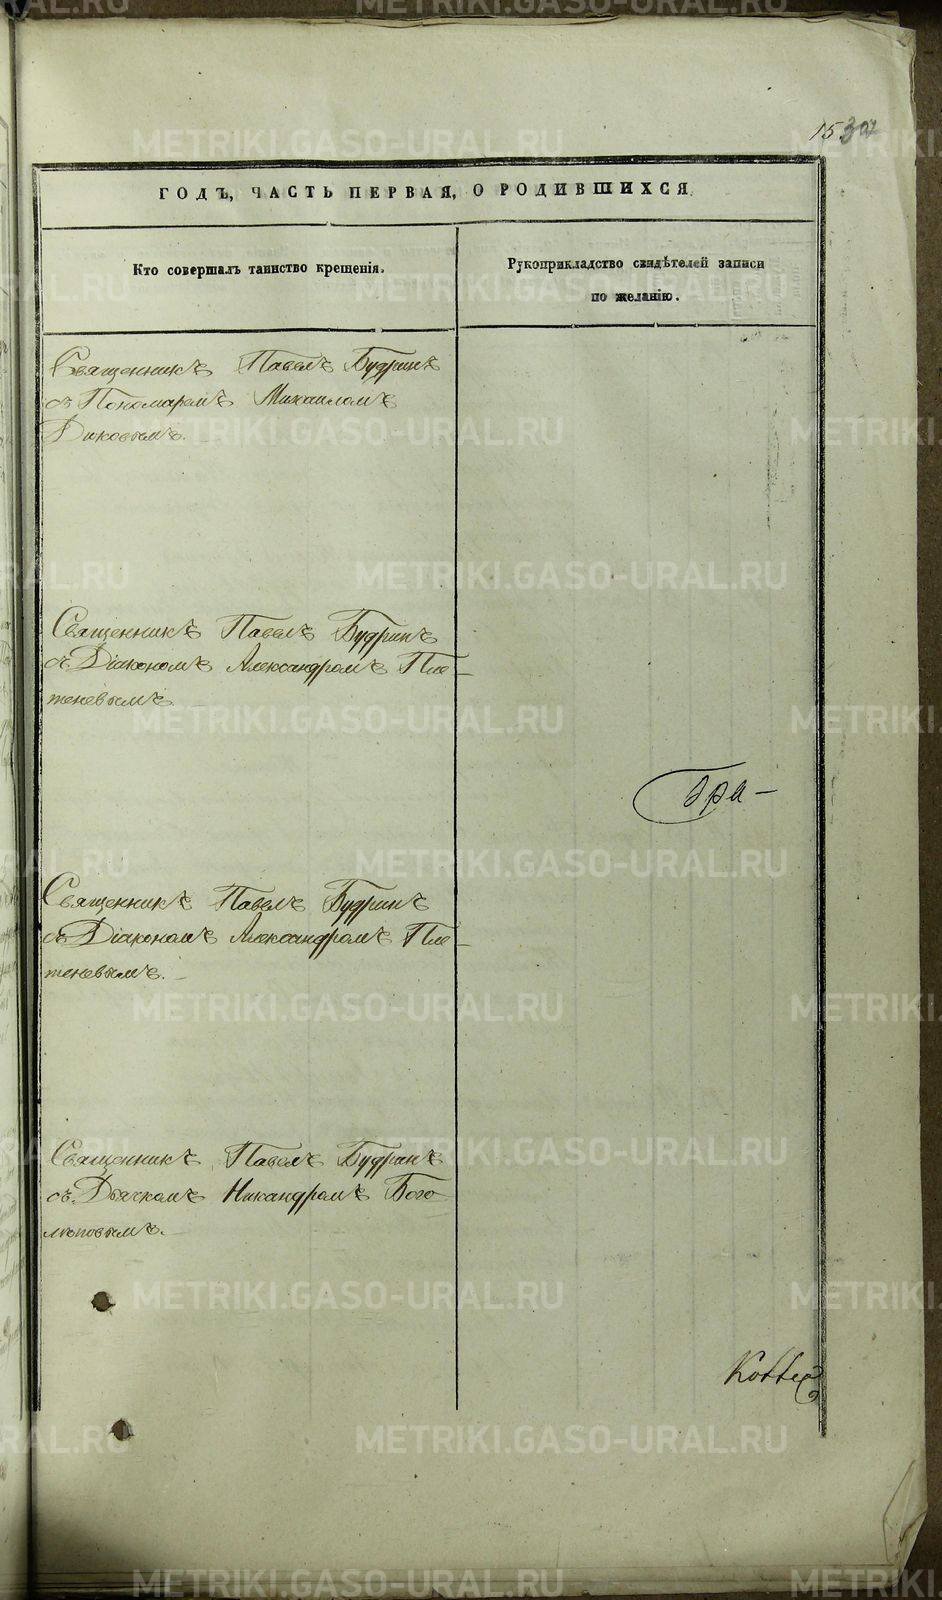 15
ГОДЪ, ЧАСТЬ ПЕРВАЯ, О РОДИВШИХСЯ
Кто совершалъ таинство крещенія.
Рукоприкладство свидѣтелей записи
по желанію.
Священникъ Павелъ Будринъ
съ Пономаремъ Михаиломъ
Диковымъ.
Священникъ Павелъ Будринъ
съ Діакономъ Александромъ Пле-
теневымъ
Бра-
Священникъ Павелъ Будринъ
съ Діакономъ Александромъ Пле-
теневымъ.
Священникъ Павелъ Будринъ
съ Дьячкомъ Никандромъ Бого-
лѣповымъ.
METRIKI.GASO-URAL.RU